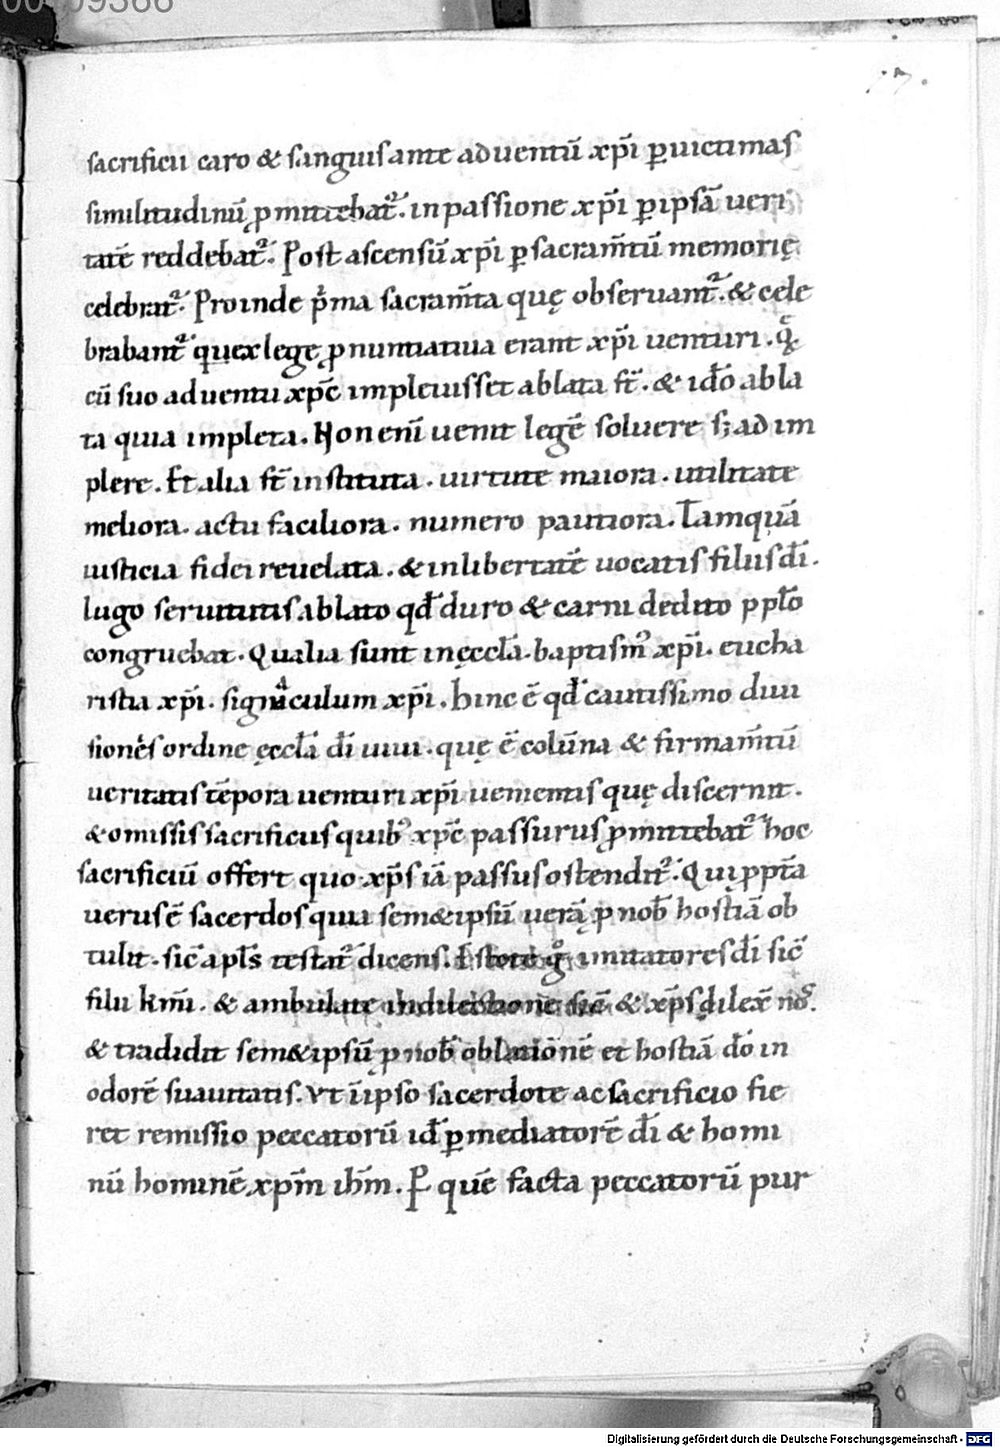 00009366
sacrificii caro & sanguis ante aduentū xp̄i ꝑ uictimas
similitudinū ꝓmittebat᷑. in passione xp̄i ꝑ ipsā ueri
tatē reddebat᷑. Post ascensū xp̄i ꝑ sacram̄tū memorię
celebrat᷑. Proinde pͥma sacram̄ta quę obseruant᷑. & cele
brabant᷑ qͣ ex lege ꝓnuntiatiua erant xp̄i uenturi.
cū suo aduentu xp̄c impleuisset ablata st̄. & id̄o abla
ta quia impleta. Non eni̅ uenit legē soluere sꝫ ad im
plere. Et alia st̄ instituta. uirtute maiora. utilitate
meliora. actu faciliora. numero pautiora. Tamquā
iusticia fidei reuelata. & in libertatē uocatis filiis dī.
Iugo seruitutis ablato qd̄ duro & carni dedito ppl̄o
congruebat. Qualia sunt in ęccl̄a. baptism᷒ xp̄i. eucha
ristia xp̄i. signaculum xp̄i. hinc ē qd̄ cautissimo diui
sionēs ordine ęccl̄a dī uiui. quę ē colūna & firmam̄tū
ueritatis tēpora uenturi xp̄i uenientis quę discernit.
& omissis sacrificiis quib᷒ xp̄c passurus ꝓmittebat᷑ hoc
sacrificiū offert quo xp̄s iā passus ostendit᷑. Qui ꝓpt̄a
uerus ē sacerdos quia sem&ipsū uerā ꝓ nob̄ hostiā ob
tulit. sic̄ apl̄s testat᷑ dicens. Estote gͦ imitatores dī sic̄
filii km̄i. & ambulate in dilectione sic̄ & xp̄s dilex̄ nos.
& tradidit sem&ipsū ꝓ nob̄ oblationē et hostiā dō in
odorē suauitatis. Vt ī ipso sacerdote ac sacrificio fie
ret remissio peccatorū id̄ ꝑ mediatorē dī & homi
nū hominē xp̄m ih̄m. Ꝑ quē facta peccatorū pur
Digitalisierung gefördert durch die Deutsche Forschungsgemeinschaft - DFG